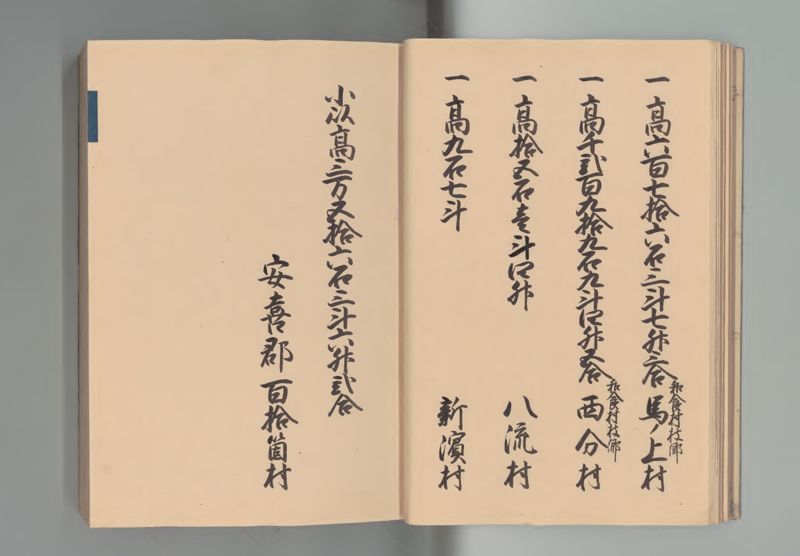 一高六百七拾六石三斗七升六合 和食村枝郷 馬ノ上村
一高千弐百九拾九石九斗四升五合 和食村枝郷 西分村
一高拾五石壱斗四升 八流村
一高九石七斗 新濱村
小以高三万五拾六石三斗六升弐合
安喜郡百拾箇村